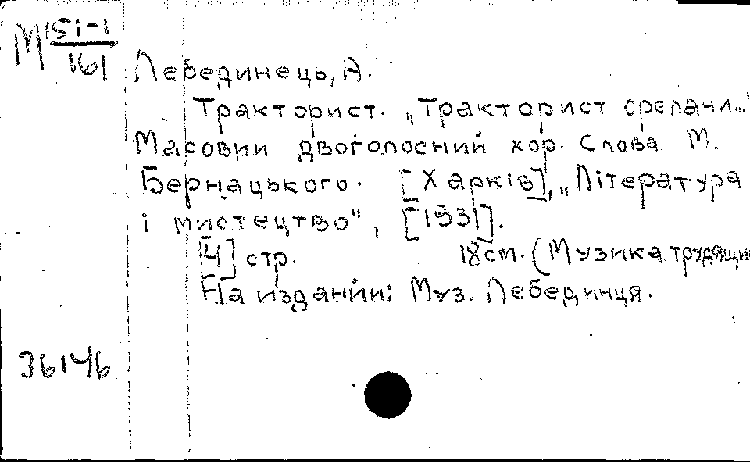 М 51-1
161
Лебединець, А.
Тракторист. „Тракторист
Масовий двоголосний хор. Слова М.
Бернацького. [Харків], „Література
і мистецтво", [1931].
[4] стр. 18 cm. (Музика трудящи
На издании: Муз. Лебединця.
36146